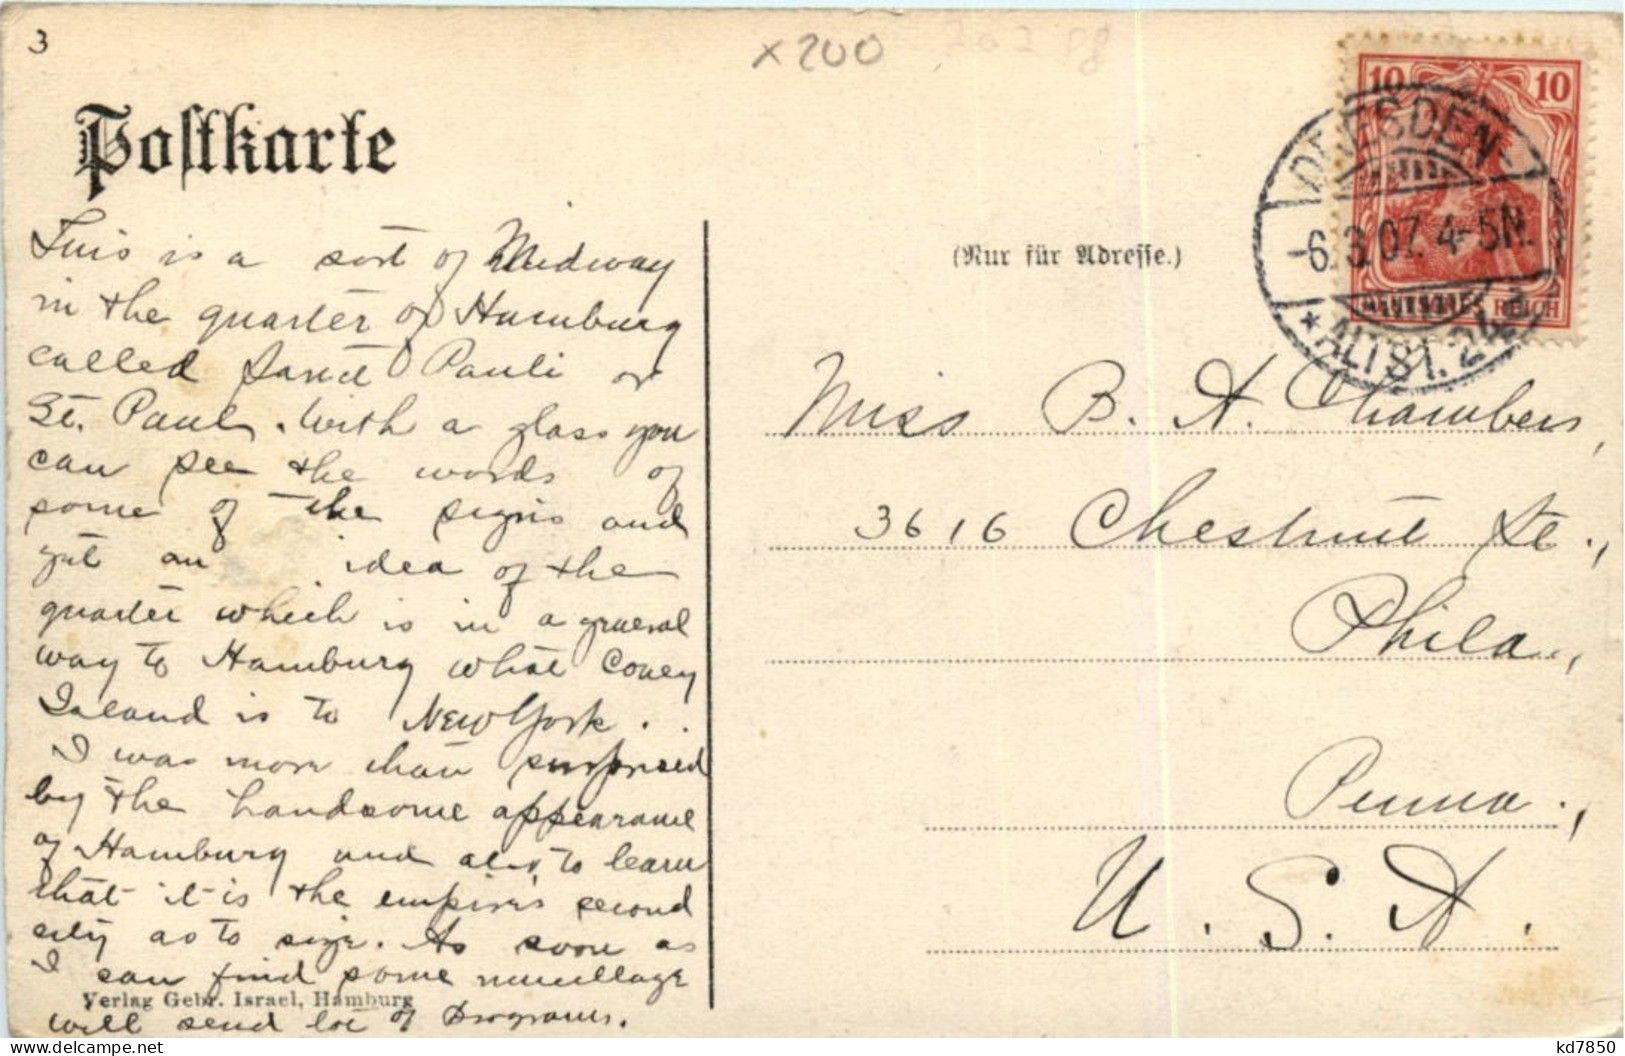 3
x 200
Postkarte
10 10
DRESDEN-
-6.3.07. 4-5N.
* ALTST. 24
REICH
(Nur für Adresse.)
This is a sort of Midway
in the quarter of Hamburg
called Sanct Pauli or
St. Paul. With a glass you
can see the words of
some of the signs and
get an idea of the
quarter which is in a general
way to Hamburg what Coney
Island is to New York.
I was more than surprised
by the handsome appearance
of Hamburg and also to learn
that it is the empire's second
city as to size. As soon as
I can find some mucillage
will send lot of Programs.
Verlag Gebr. Israel, Hamburg
Miss B. A. Chambers,
3616 Chestnut St.,
Phila.,
Penna.,
U. S. A.
kd7850